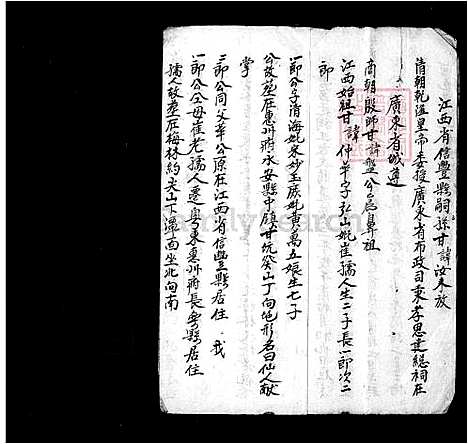 江西省信豐縣嗣孫甘諱汝來放
清朝乾隆皇帝委授廣東省布政司秉孝思建總祠在
廣東省城遵
商朝殷師甘諱盤公為鼻祖
江西始祖甘諱仲華字弘山妣崔孺人生二子長一郎次二
郎
一郎公字清海妣宋妙玉厥妣黃萬五娘生七子
公故塟在惠州府永安縣中鎮甘坑癸山丁向地形名曰仙人獻
掌
二郎公同父華公原在江西省信豐縣居住 我
一郎公仝母崔老孺人遷粵東惠州府長寧縣居住
孺人故塟在梅林約尖山下潭面坐北向南